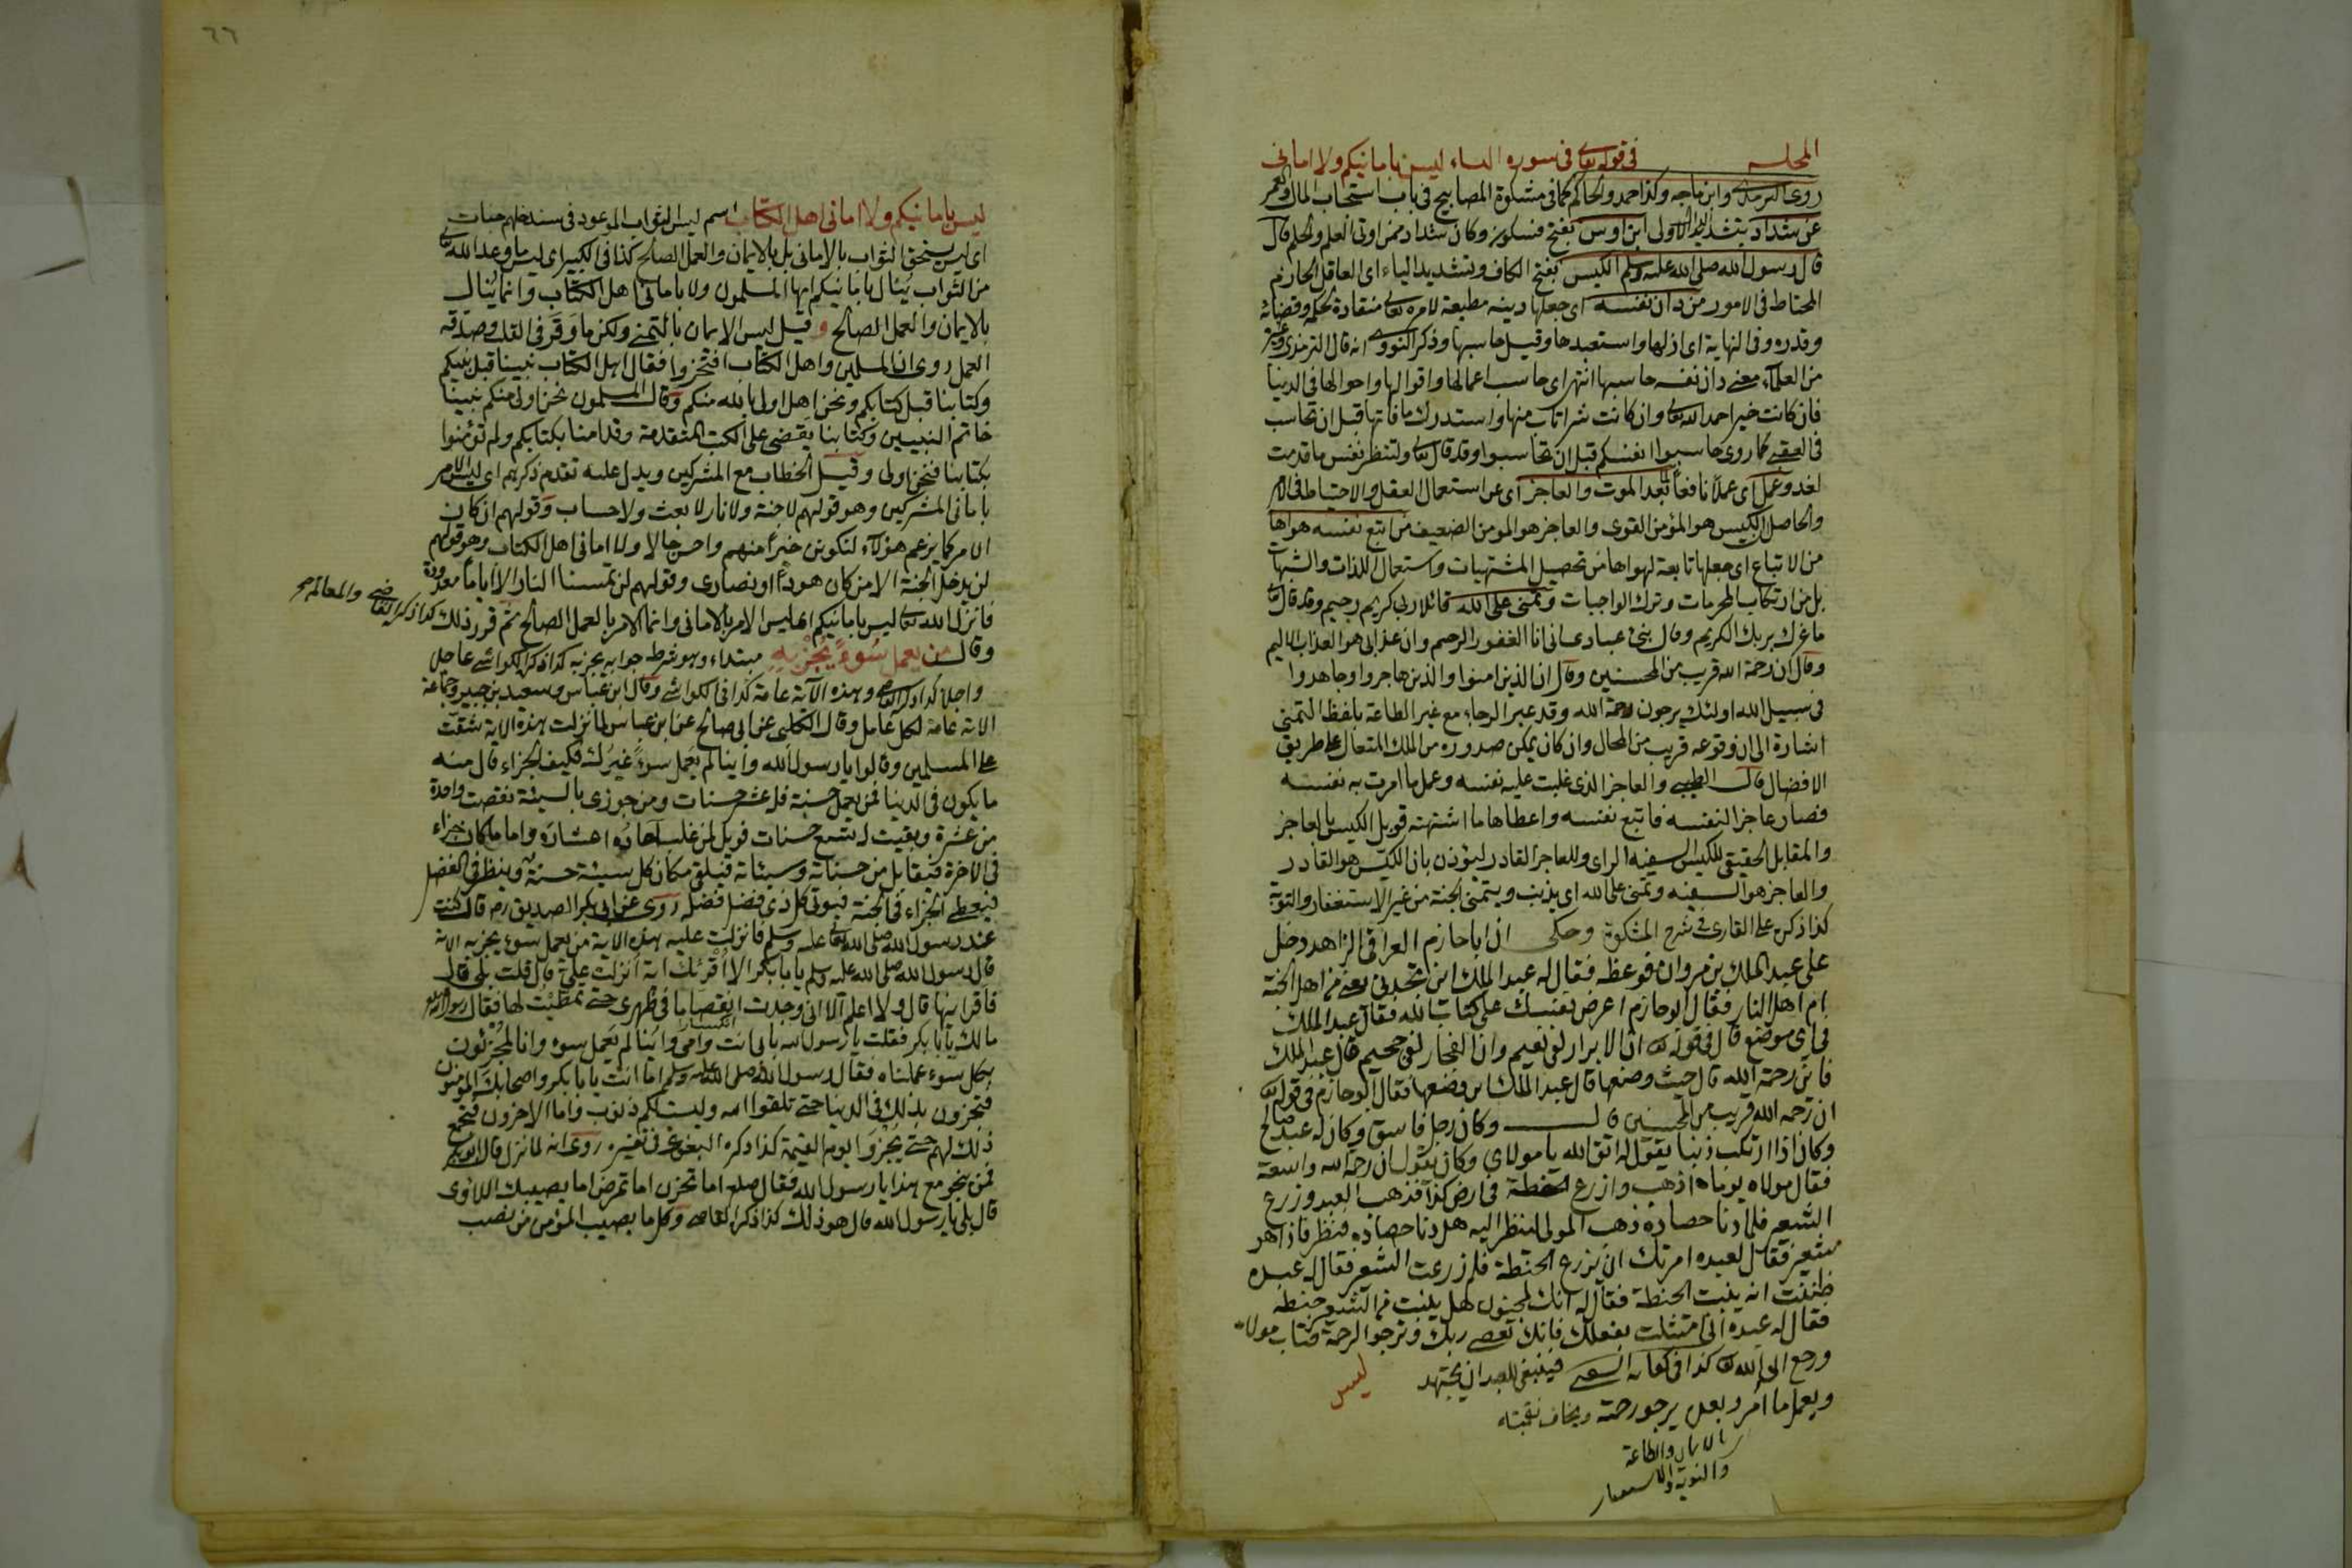 المجلس في قوله تعالى في سورة النساء ليس بامانيكم ولا اماني
روى الترمذي وابن ماجه وكذا احمد والحاكم كما في مشكوة المصابيح في باب استحباب المال والعمر
عن شداد بتشديد الدال الاولى ابن اوس بفتح فسكون وكان شداد ممن اوتي العلم والحلم قال
قال رسول الله صلى الله عليه وسلم الكيس بفتح الكاف وتشديد الياء اى العاقل الحازم
المحتاط في الامور من دان نفسه اى جعلها دينه مطيعة لامره تعالى منقادة لحكمه وقضائه
وقدره وفي النهاية اى اذلها واستعبدها وقيل حاسبها وذكر النووى انه قال الترمذى وغيره
من العلماء معنى دان نفسه حاسبها انتهى اى حاسب اعمالها واقوالها واحوالها في الدنيا
فان كانت خيرا حمد الله تعالى وان كانت شرا تاب منها واستدرك ما فاتها قبل ان تحاسب
في العقبى كما روى حاسبوا انفسكم قبل ان تحاسبوا وقد قال تعالى ولتنظر نفس ما قدمت
لغد وعمل اى عملا نافعا لما بعد الموت والعاجز اى عن استعمال العقل والاحتياط في الامر
والحاصل الكيس هو المؤمن القوى والعاجز هو المومن الضعيف من اتبع نفسه هواها
من الاتباع اى جعلها تابعة لهواها من تحصيل المشتهيات واستعمال اللذات والشبهات
بل من ارتكاب المحرمات وترك الواجبات وتمنى على الله قائلا ربى كريم رحيم وقد قال تعالى
ما غرك بربك الكريم وقال نبئ عبادى انى انا الغفور الرحيم وان عذابى هو العذاب الاليم
وقال ان رحمة الله قريب من المحسنين وقال ان الذين امنوا والذين هاجروا وجاهدوا
في سبيل الله اولئك يرجون رحمة الله وقد عبر الرجاء مع غير الطاعة بلفظ التمنى
اشارة الى ان وقوعه قريب من المحال وان كان يمكن صدوره من الملك المتعال على طريق
الافضال قال الطيبى والعاجز الذى غلبت عليه نفسه وعمل ما امرت به نفسه
فصار عاجزا لنفسه فاتبع نفسه واعطاها ما اشتهته قوبل الكيس بالعاجز
والمقابل الحقيقى للكيس السفيه الراى وللعاجز القادر ليؤذن بان الكيس هو القادر
والعاجز هو السفيه وتمنى على الله اى يذنب ويتمنى الجنة من غير الاستغفار والتوبة
كذا ذكره على القارى في شرح المشكوة وحكى ان ابا حازم العراقى الزاهد دخل
على عبد الملك بن مروان فوعظه فقال له عبد الملك اين تجدنى يعنى من اهل الجنة
ام اهل النار فقال ابو حازم اعرض نفسك على كتاب الله فقال عبد الملك
في اى موضع قال في قوله تعالى ان الابرار لفى نعيم وان الفجار لفى جحيم قال عبد الملك
فاين رحمة الله قال حيث وضعها قال عبد الملك اين وضعها فقال ابو حازم في قوله تعالى
ان رحمة الله قريب من المحسنين قال وكان رجل فاسق وكان له عبد صالح
وكان اذا ارتكب ذنبا يقول له اتق الله يا مولاى وكان يقول ان رحمة الله واسعة
فقال مولاه يوما اذهب وازرع الحنطة في ارض كذا فذهب العبد وزرع
الشعير فلما دنا حصاده ذهب المولى لينظر اليه هل دنا حصاده فنظر فاذا هو
شعير فقال لعبده امرتك ان تزرع الحنطة فلم زرعت الشعير فقال له عبده
ظننت انه ينبت الحنطة فقال له انك لمجنون هل ينبت من الشعير حنطة
فقال له عبده انى امتثلت بفعلك فانك تعصى ربك وترجو الرحمة فتاب مولاه
ورجع الى الله تعالى كذا في فينبغى للعبد ان يجتهد
ويعمل ما امر ويرجو رحمته ويخاف
بالايمان والطاعة
والتوبة والاستغفار
ليس
٦٦
ليس بامانيكم ولا امانى اهل الكتاب اسم ليس الثواب الموعود في سندخلهم جنات
اى ليس يستحق الثواب بالامانى بل بالايمان والعمل الصالح كذا في الكبير اى ليس ما وعد الله تعالى
من الثواب ينال بامانيكم ايها المسلمون ولا بامانى اهل الكتاب وانما ينال
بالايمان والعمل الصالح وقيل ليس الايمان بالتمنى ولكن ما وقر في القلب وصدقه
العمل روى ان المسلمين واهل الكتاب افتخروا فقال اهل الكتاب نبينا قبل نبيكم
وكتابنا قبل كتابكم ونحن اولى بالله منكم وقال المسلمون نحن اولى منكم نبينا
خاتم النبيين وكتابنا يقضى على الكتب المتقدمة وقد امنا بكتابكم ولم تؤمنوا
بكتابنا فنحن اولى وقيل الخطاب مع المشركين ويدل عليه تقدم ذكرهم اى ليس الامر
بامانى المشركين وهو قولهم لا جنة ولا نار لا بعث ولا حساب وقولهم ان كان
الامر كما يزعم هؤلاء لنكونن خيرا منهم واحسن حالا ولا امانى اهل الكتاب وهو قولهم
لن يدخل الجنة الا من كان هودا او نصارى وقولهم لن تمسنا النار الا اياما معدودة
فانزل الله تعالى ليس بامانيكم اى ليس الامر بالامانى وانما الامر بالعمل الصالح ثم قرر ذلك كذا ذكره القاضى والمعالم
وقال من يعمل سوءا يجز به مبتداء وهو شرط جوابه يجز به كذا ذكره الكواشى عاجل
واجلا كذا ذكره القاضى وهذه الآية عامة كذا في الكواشى وقال ابن عباس وسعيد بن جبير وجماعة
الاية عامة لكل عامل وقال الكلبى عن ابى صالح عن ابن عباس لما نزلت هذه الاية شقت
على المسلمين وقالوا يا رسول الله واينا لم يعمل سوءا غيرك فكيف الجزاء قال منه
ما يكون في الدنيا فمن يعمل حسنة فله عشر حسنات ومن جوزى بالسيئة نقصت واحدة
من عشرة وبقيت له تسع حسنات فويل لمن غلب آحاده اعشاره واما ما كان جزاء
في الآخرة فيقابل بين حسناته وسيئاته فيلقى مكان كل سيئة حسنة وينظر في الفضل
فيعطى الجزاء في الجنة فيوتى كل ذى فضل فضله روى عن ابى بكر الصديق رضه قال كنت
عند رسول الله صلى الله تعالى عليه وسلم فانزلت عليه هذه الاية من يعمل سوء يجز به الاية
قال رسول الله صلى الله عليه وسلم يا ابا بكر الا اقرئك اية انزلت على قال قلت بلى قال
فاقرانيها قال ولا اعلم الا انى وجدت انقصاما في ظهرى حتى تمطيت لها فقال رسول الله
انكسارا
مالك يا ابا بكر فقلت يا رسول الله بابى انت وامى واينا لم يعمل سوء وانا لمجزئون
بكل سوء عملناه فقال رسول الله صلى الله عليه وسلم اما انت يا ابا بكر واصحابك المومنون
فتجزون بذلك في الدنيا حتى تلقوا الله وليست لكم ذنوب واما الاخرون فيجمع
ذلك لهم حتى يجزوا يوم القيمة كذا ذكره البغوى في تفسيره روى انه لما نزل قال ابو بكر
فمن ينجو مع هذا يا رسول الله فقال صلعم اما تحزن اما تمرض اما يصيبك اللاوى
قال بلى يا رسول الله قال هو ذلك كذا ذكره القاضى وكل ما يصيب المؤمن من نصب